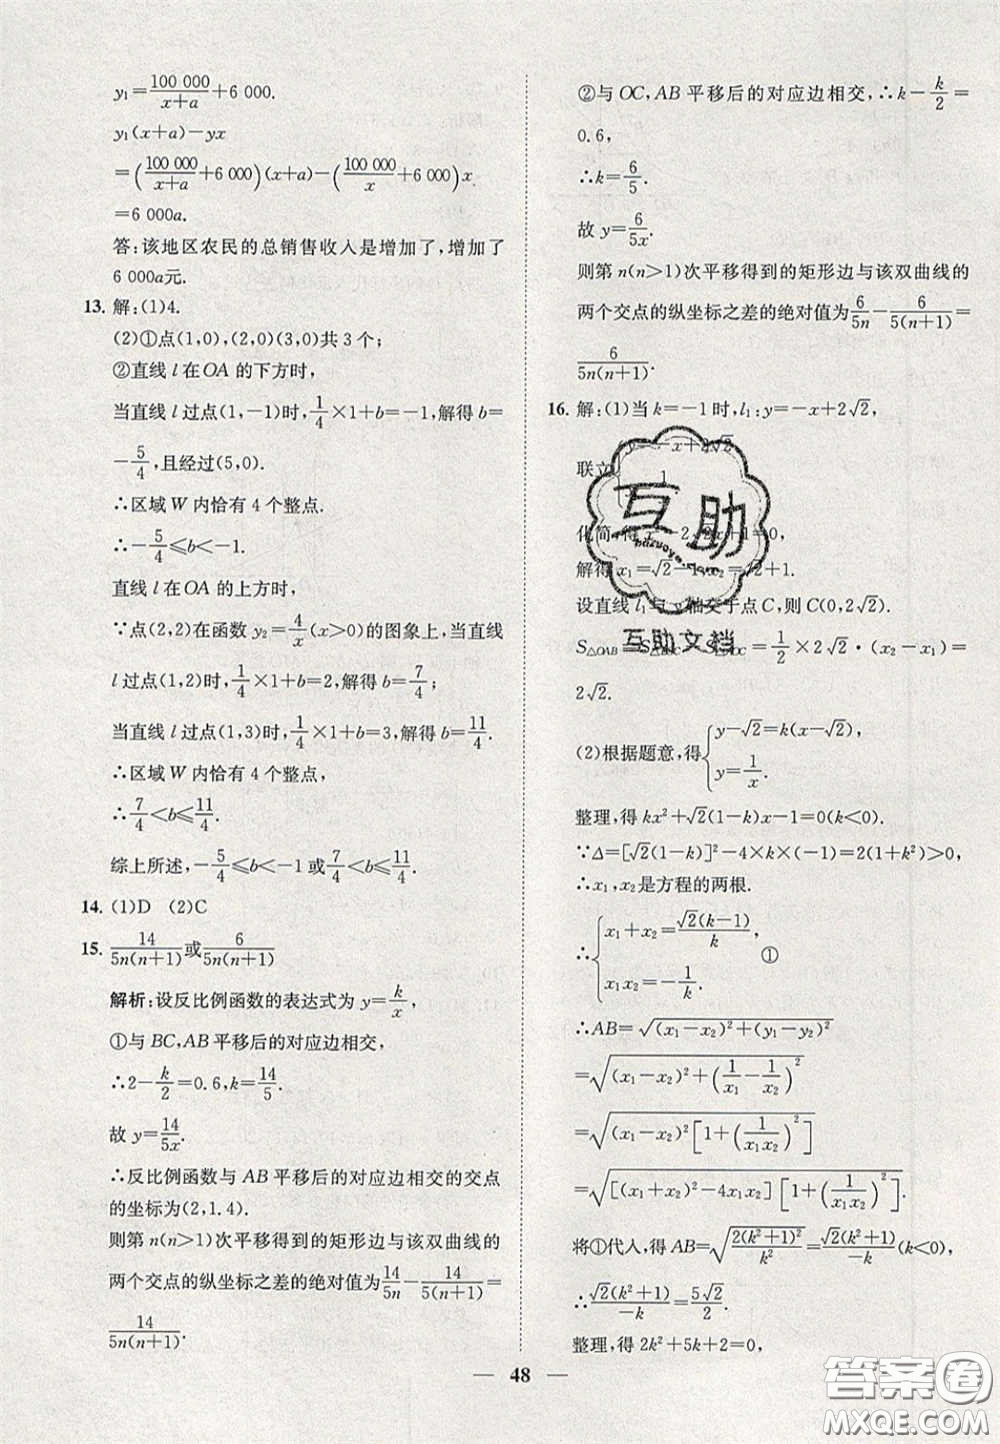 y₁=100 000/(x+a)+6 000.
y₁(x+a)-yx
=(100 000/(x+a)+6 000)(x+a)-(100 000/x+6 000)x
=6 000a.
答:该地区农民的总销售收入是增加了,增加了
6 000a元.
13. 解:(1)4.
(2)①点(1,0),(2,0)(3,0)共3个;
②直线 l 在OA的下方时,
当直线 l 过点(1,-1)时,1/4×1+b=-1,解得b=
-5/4,且经过(5,0).
∴区域 W 内恰有4个整点.
∴-5/4≤b<-1.
直线 l 在OA的上方时,
∵点(2,2)在函数 y₂=4/x(x>0)的图象上,当直线
l 过点(1,2)时,1/4×1+b=2,解得b=7/4;
当直线 l 过点(1,3)时,1/4×1+b=3,解得b=11/4.
∴区域 W 内恰有4个整点,
∴7/4<b≤11/4.
综上所述,-5/4≤b<-1或7/4<b≤11/4.
14. (1)D (2)C
15. 14/5n(n+1)或6/5n(n+1)
解析:设反比例函数的表达式为 y=k/x,
①与BC,AB平移后的对应边相交,
∴2-k/2=0.6,k=14/5.
故 y=14/5x.
∴反比例函数与AB平移后的对应边相交的交点
的坐标为(2,1.4).
则第n(n>1)次平移得到的矩形边与该双曲线的
两个交点的纵坐标之差的绝对值为14/5n-14/5(n+1)=
14/5n(n+1).
②与OC,AB平移后的对应边相交,∴k-k/2=
0.6,
∴k=6/5.
故 y=6/5x.
则第n(n>1)次平移得到的矩形边与该双曲线的
两个交点的纵坐标之差的绝对值为6/5n-6/5(n+1)=
6/5n(n+1).
16. 解:(1)当k=-1时,l₁:y=-x+2√2,
联立 -x+2√2
化简,得 x²-2√2x+1=0,
解得 x₁=√2-1,x₂=√2+1.
设直线 l₁与y轴交于点C,则C(0,2√2).
S△OAB= =1/2×2√2·(x₂-x₁)=
2√2.
(2)根据题意,得{y-√2=k(x-√2),
y=1/x.
整理,得kx²+√2(1-k)x-1=0(k<0).
∵Δ=[√2(1-k)]²-4×k×(-1)=2(1+k²)>0,
∴x₁,x₂是方程的两根.
∴{x₁+x₂=√2(k-1)/k,
x₁x₂=-1/k. ①
∴AB=√((x₁-x₂)²+(y₁-y₂)²)
=√((x₁-x₂)²+(1/x₁-1/x₂)²)
=√((x₁-x₂)²[1+(1/x₁x₂)²])
=√([(x₁+x₂)²-4x₁x₂][1+(1/x₁x₂)²]).
将①代入,得AB=√(2(k²+1)²/k²)=√2(k²+1)/-k(k<0),
∴√2(k²+1)/-k=5√2/2.
整理,得2k²+5k+2=0,
互助
互助文档
— 48 —
答案圈
MXQE.COM